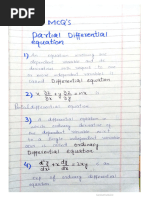 MCQ'S
Partial Differential
equation
1) An equation involving one
dependent variable and its
derivatives with respect to one
or more independent variable is
called Differential equation
2) x ∂z/∂x + y ∂z/∂y = nx
Partial
3) A differential equation in
which ordinary derivative of
the dependent variable with
respect to a single independent
variable is called ordinary
Differential equation
4) d²y/dx² + x dy/dx = 2xy
of ordinary differential